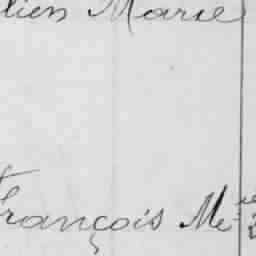 lien Marie
François Me